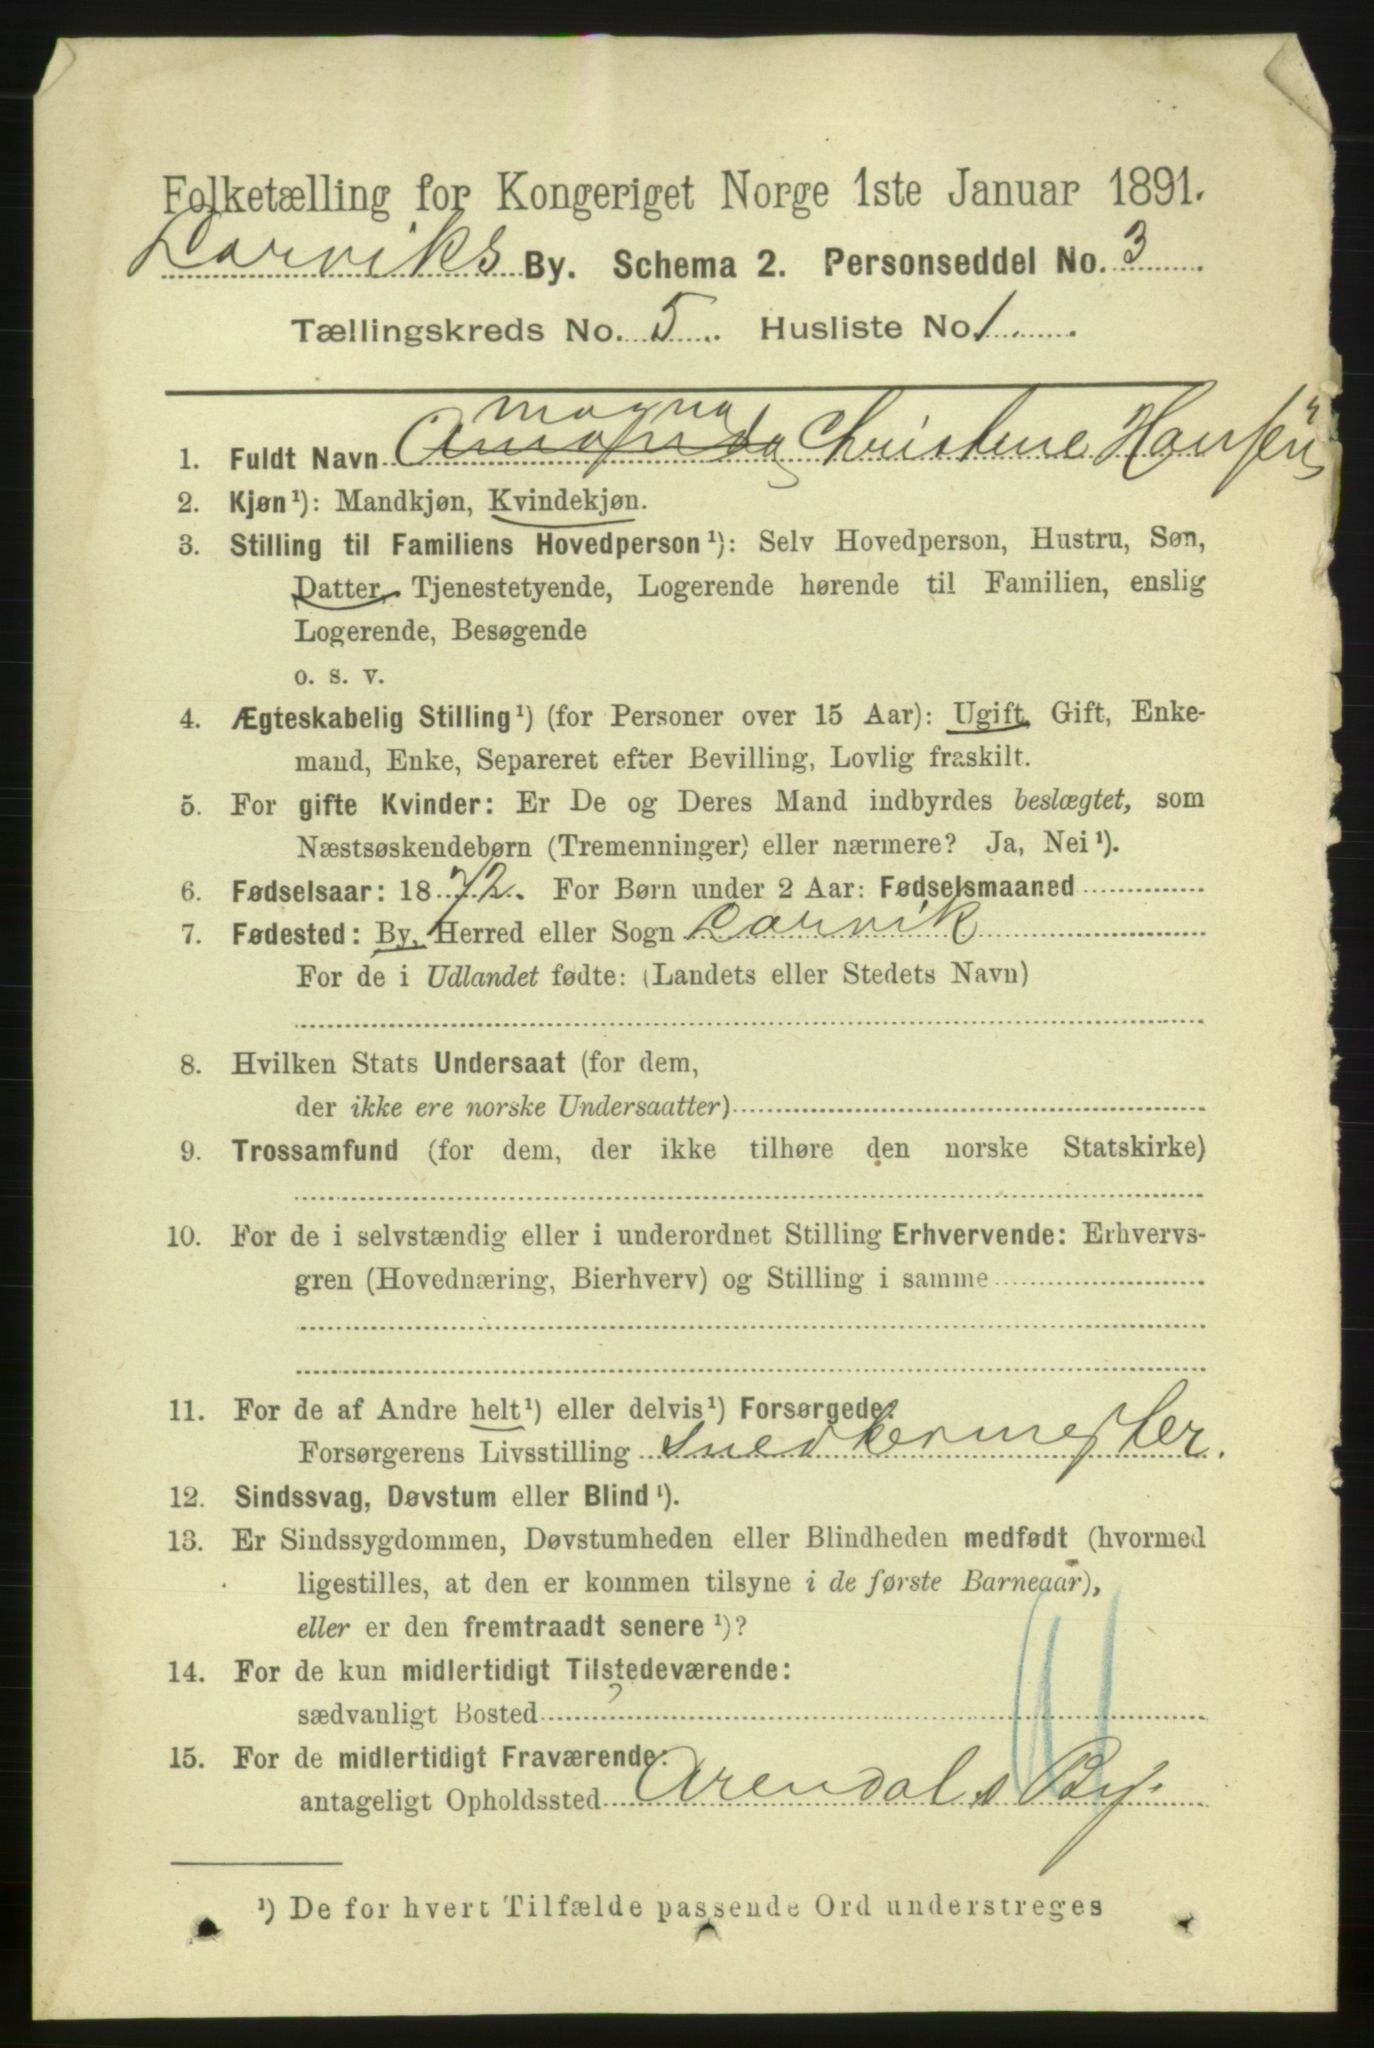 Folketælling for Kongeriget Norge 1ste Januar 1891.
Larviks By. Schema 2. Personseddel No. 3
Tællingskreds No. 5. Husliste No. 1
Magna
1. Fuldt Navn Amanda Christine Hansen
2. Kjøn¹): Mandkjøn, Kvindekjøn.
3. Stilling til Familiens Hovedperson¹): Selv Hovedperson, Hustru, Søn,
Datter, Tjenestetyende, Logerende hørende til Familien, enslig
Logerende, Besøgende
o. s. v.
4. Ægteskabelig Stilling¹) (for Personer over 15 Aar): Ugift, Gift, Enke-
mand, Enke, Separeret efter Bevilling, Lovlig fraskilt.
5. For gifte Kvinder: Er De og Deres Mand indbyrdes beslægtet, som
Næstsøskendebørn (Tremenninger) eller nærmere? Ja, Nei¹).
6. Fødselsaar: 1872. For Børn under 2 Aar: Fødselsmaaned
7. Fødested: By, Herred eller Sogn Larvik
For de i Udlandet fødte: (Landets eller Stedets Navn)
8. Hvilken Stats Undersaat (for dem,
der ikke ere norske Undersaatter)
9. Trossamfund (for dem, der ikke tilhøre den norske Statskirke)
10. For de i selvstændig eller i underordnet Stilling Erhvervende: Erhvervs-
gren (Hovednæring, Bierhverv) og Stilling i samme
11. For de af Andre helt¹) eller delvis¹) Forsørgede:
Forsørgerens Livsstilling Snedkermester.
12. Sindssvag, Døvstum eller Blind¹).
13. Er Sindssygdommen, Døvstumheden eller Blindheden medfødt (hvormed
ligestilles, at den er kommen tilsyne i de første Barneaar),
eller er den fremtraadt senere¹)?
14. For de kun midlertidigt Tilstedeværende:
sædvanligt Bosted
15. For de midlertidigt Fraværende:
antageligt Opholdssted Arendals By.
¹) De for hvert Tilfælde passende Ord understreges